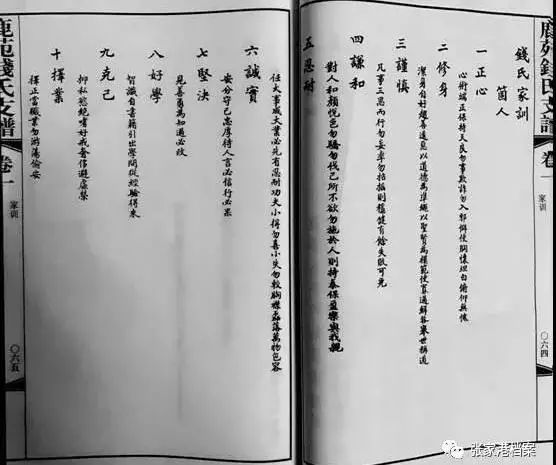 鹿苑錢氏支譜 卷一 家训 〇六四
錢氏家訓
箇人
一正心
心術端正保持天良勿事欺詐勿入邪僻使胸懷坦白俯仰無愧
二修身
潔身自好趨善遠惡以道德為準繩以聖賢為模範使舉世稱道
三謹慎
凡事三思而行勿妄舉勿招搖則穩健有餘失敗可免
四謙和
對人和顏悅色勿驕勿伐己所不欲勿施於人則持泰保盈樂與我親
五忍耐
任大事成大業必先有忍耐功夫小得勿喜小失勿較胸襟磊落萬物包容
六誠實
安分守己忠厚待人言必信行必果
七堅決
見善勇為知過必改
八好學
智識自書籍引出學問從經驗得來
九克己
抑私慾絕嗜好戒奢侈避虛榮
十擇業
擇正當職業勿游蕩偷安
鹿苑錢氏支譜 卷一 家训 〇六五
张家港档案